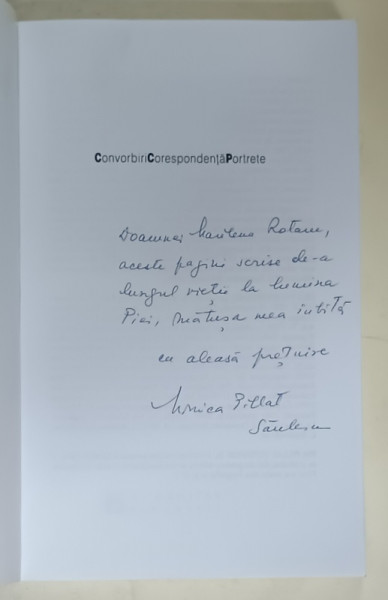 ConvorbiriCorespondențăPortrete
Doamnei Marilena Rotaru,
aceste pagini scrise de-a
lungul vieții la lumina
Piei, mătușa mea iubită
cu aleasă prețuire
Monica Pillat
Săulescu